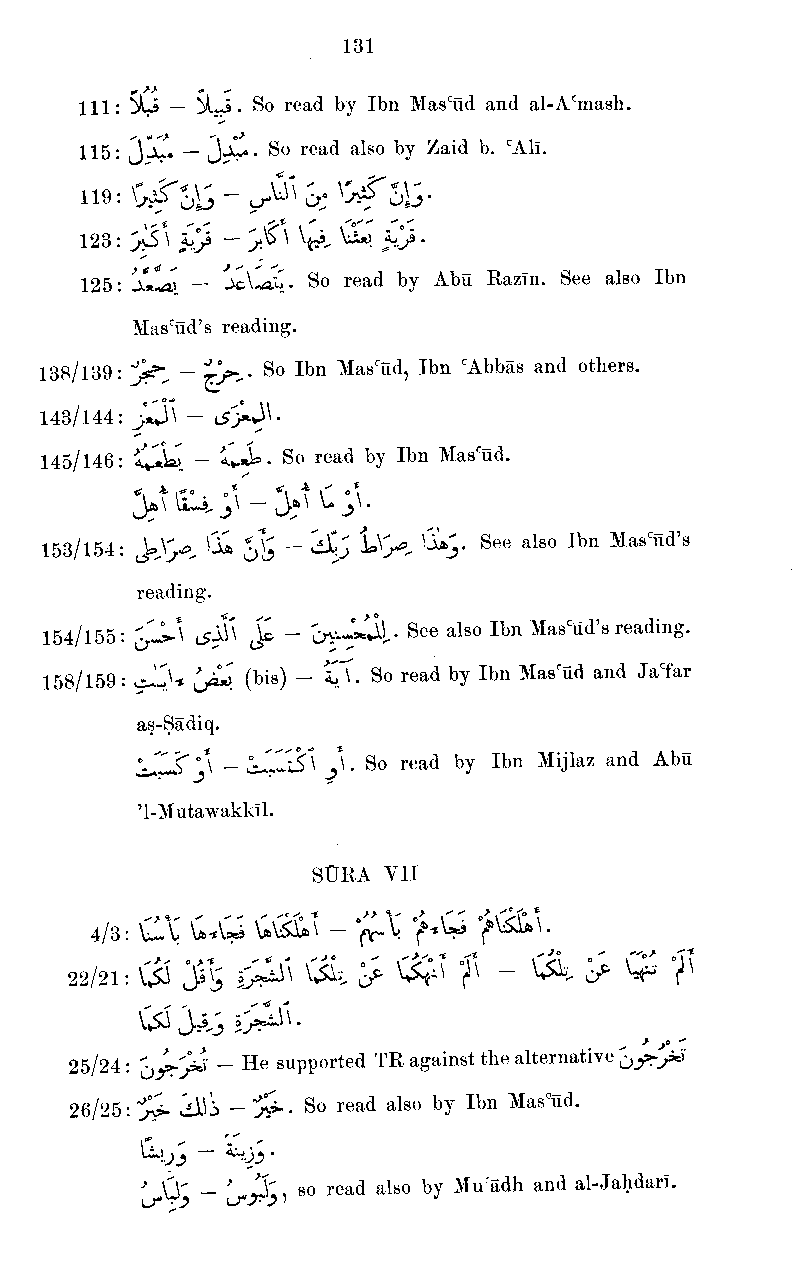 131
111: قُبُلاً – قَبِيلاً. So read by Ibn Masʿūd and al-Aʿmash.
115: مُبَدِّلَ – مُبْدِلَ. So read also by Zaid b. ʿAlī.
119: وَإِنَّ كَثِيرًا – وَإِنَّ كَثِيرًا مِنَ ٱلنَّاسِ.
123: قَرْيَةٍ أَكَٰبِرَ – قَرْيَةٍ بَعَثْنَا فِيهَا أَكَابِرَ.
125: يَصَّعَّدُ – يَتَصَاعَدُ. So read by Abū Razīn. See also Ibn
Masʿūd's reading.
138/139: حِجْرٌ – حِرْجٌ. So Ibn Masʿūd, Ibn ʿAbbās and others.
143/144: ٱلْمَعْزِ – المِعْزَى.
145/146: يَطْعَمُهُ – طَعِمَهُ. So read by Ibn Masʿūd.
أَوْ فِسْقًا أُهِلَّ – أَوْ مَا أُهِلَّ.
153/154: وَأَنَّ هَذَا صِرَاطِى – وَهَٰذَا صِرَاطُ رَبِّكَ. See also Ibn Masʿūd's
reading.
154/155: عَلَى ٱلَّذِى أَحْسَنَ – لِلْمُحْسِنِينَ. See also Ibn Masʿūd's reading.
158/159: بَعْضُ ءَايَٰتِ (bis) – آيَةُ. So read by Ibn Masʿūd and Jaʿfar
aṣ-Ṣādiq.
أَوْ كَسَبَتْ – أَوِ ٱكْتَسَبَتْ. So read by Ibn Mijlaz and Abū
'l-Mutawakkīl.
SŪRA VII
4/3: أَهْلَكْنَاهَا فَجَاءَهَا بَأْسُنَا – أَهْلَكْنَاهُمْ فَجَاءَهُمْ بَأْسُهُمْ.
22/21: أَلَمْ تُنْهَيَا عَنْ تِلْكُمَا – أَلَمْ أَنْهَكُمَا عَنْ تِلْكُمَا ٱلشَّجَرَةِ وَأَقُلْ لَكُمَا
ٱلشَّجَرَةِ وَقِيلَ لَكُمَا.
25/24: تُخْرَجُونَ – He supported TR against the alternative تَخْرُجُونَ
26/25: ذَٰلِكَ خَيْرٌ – خَيْرٌ. So read also by Ibn Masʿūd.
وَرِيشًا – وَزِينَةً.
وَلِبَاسُ – وَلَبُوسُ, so read also by Muʿādh and al-Jaḥdarī.